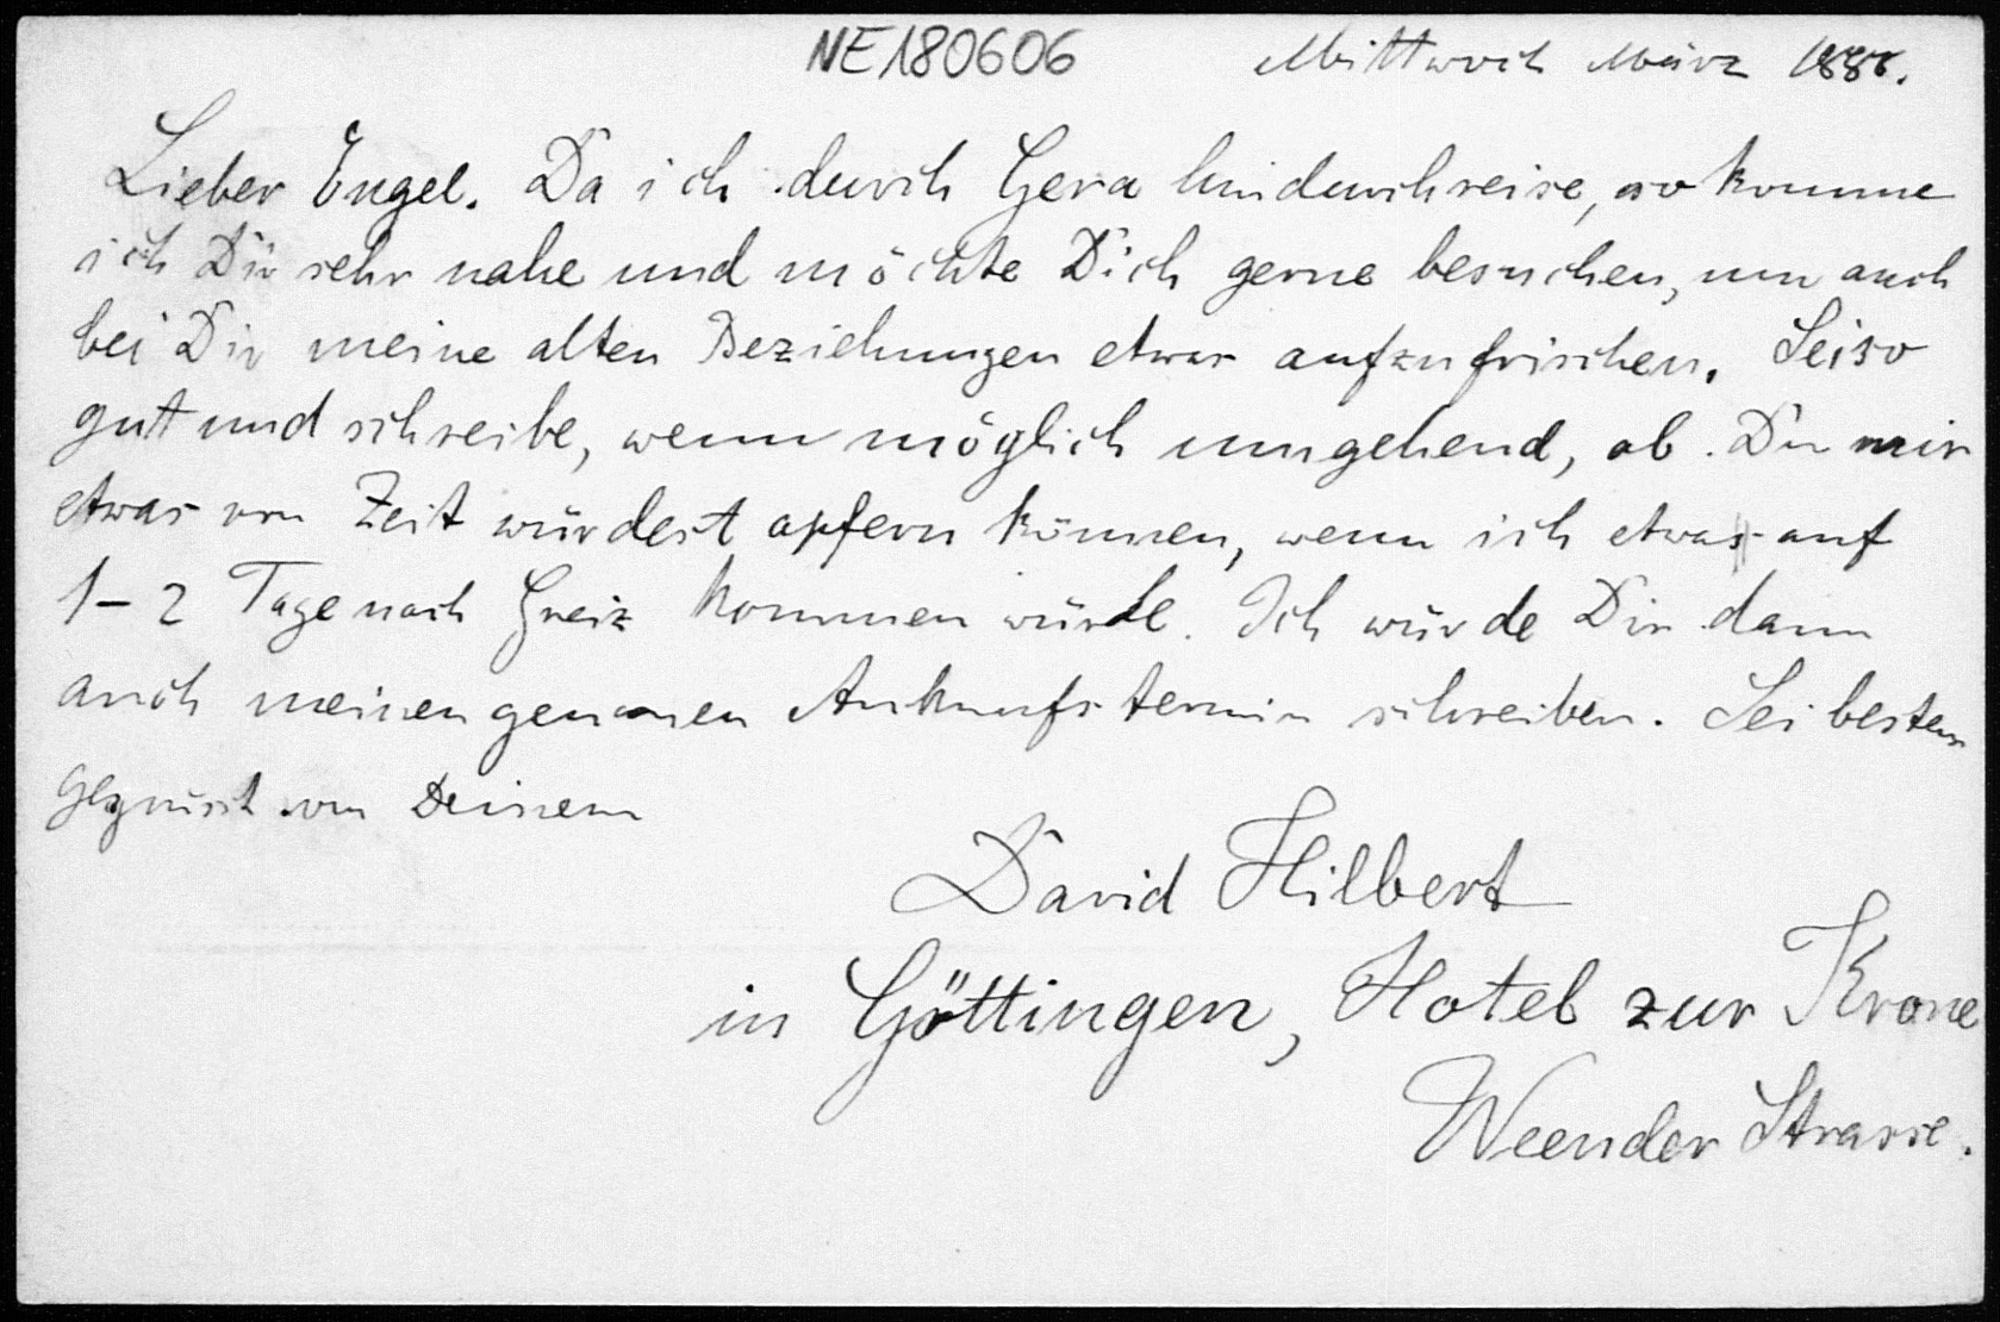 NE180606
Mittwoch März 1888.
Lieber Engel. Da ich durch Gera hindurchreise, so komme
ich Dir sehr nahe und möchte Dich gerne besuchen, um auch
bei Dir meine alten Beziehungen etwas aufzufrischen. Sei so
gut und schreibe, wenn möglich umgehend, ob Du mir
etwas von Zeit würdest opfern können, wenn ich etwas auf
1-2 Tage nach Greiz kommen würde. Ich würde Dir dann
auch meinen genauen Ankunfstermin schreiben. Sei bestens
gegrüsst von Deinem
David Hilbert
in Göttingen, Hotel zur Krone
Weender Strasse.